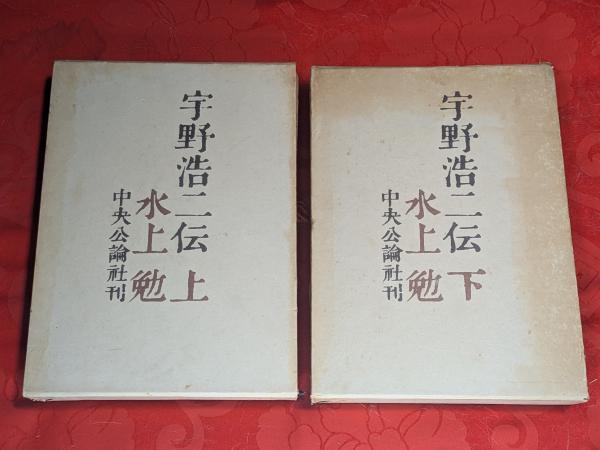 宇野浩二伝 上
水上勉
中央公論社刊
宇野浩二伝 下
水上勉
中央公論社刊